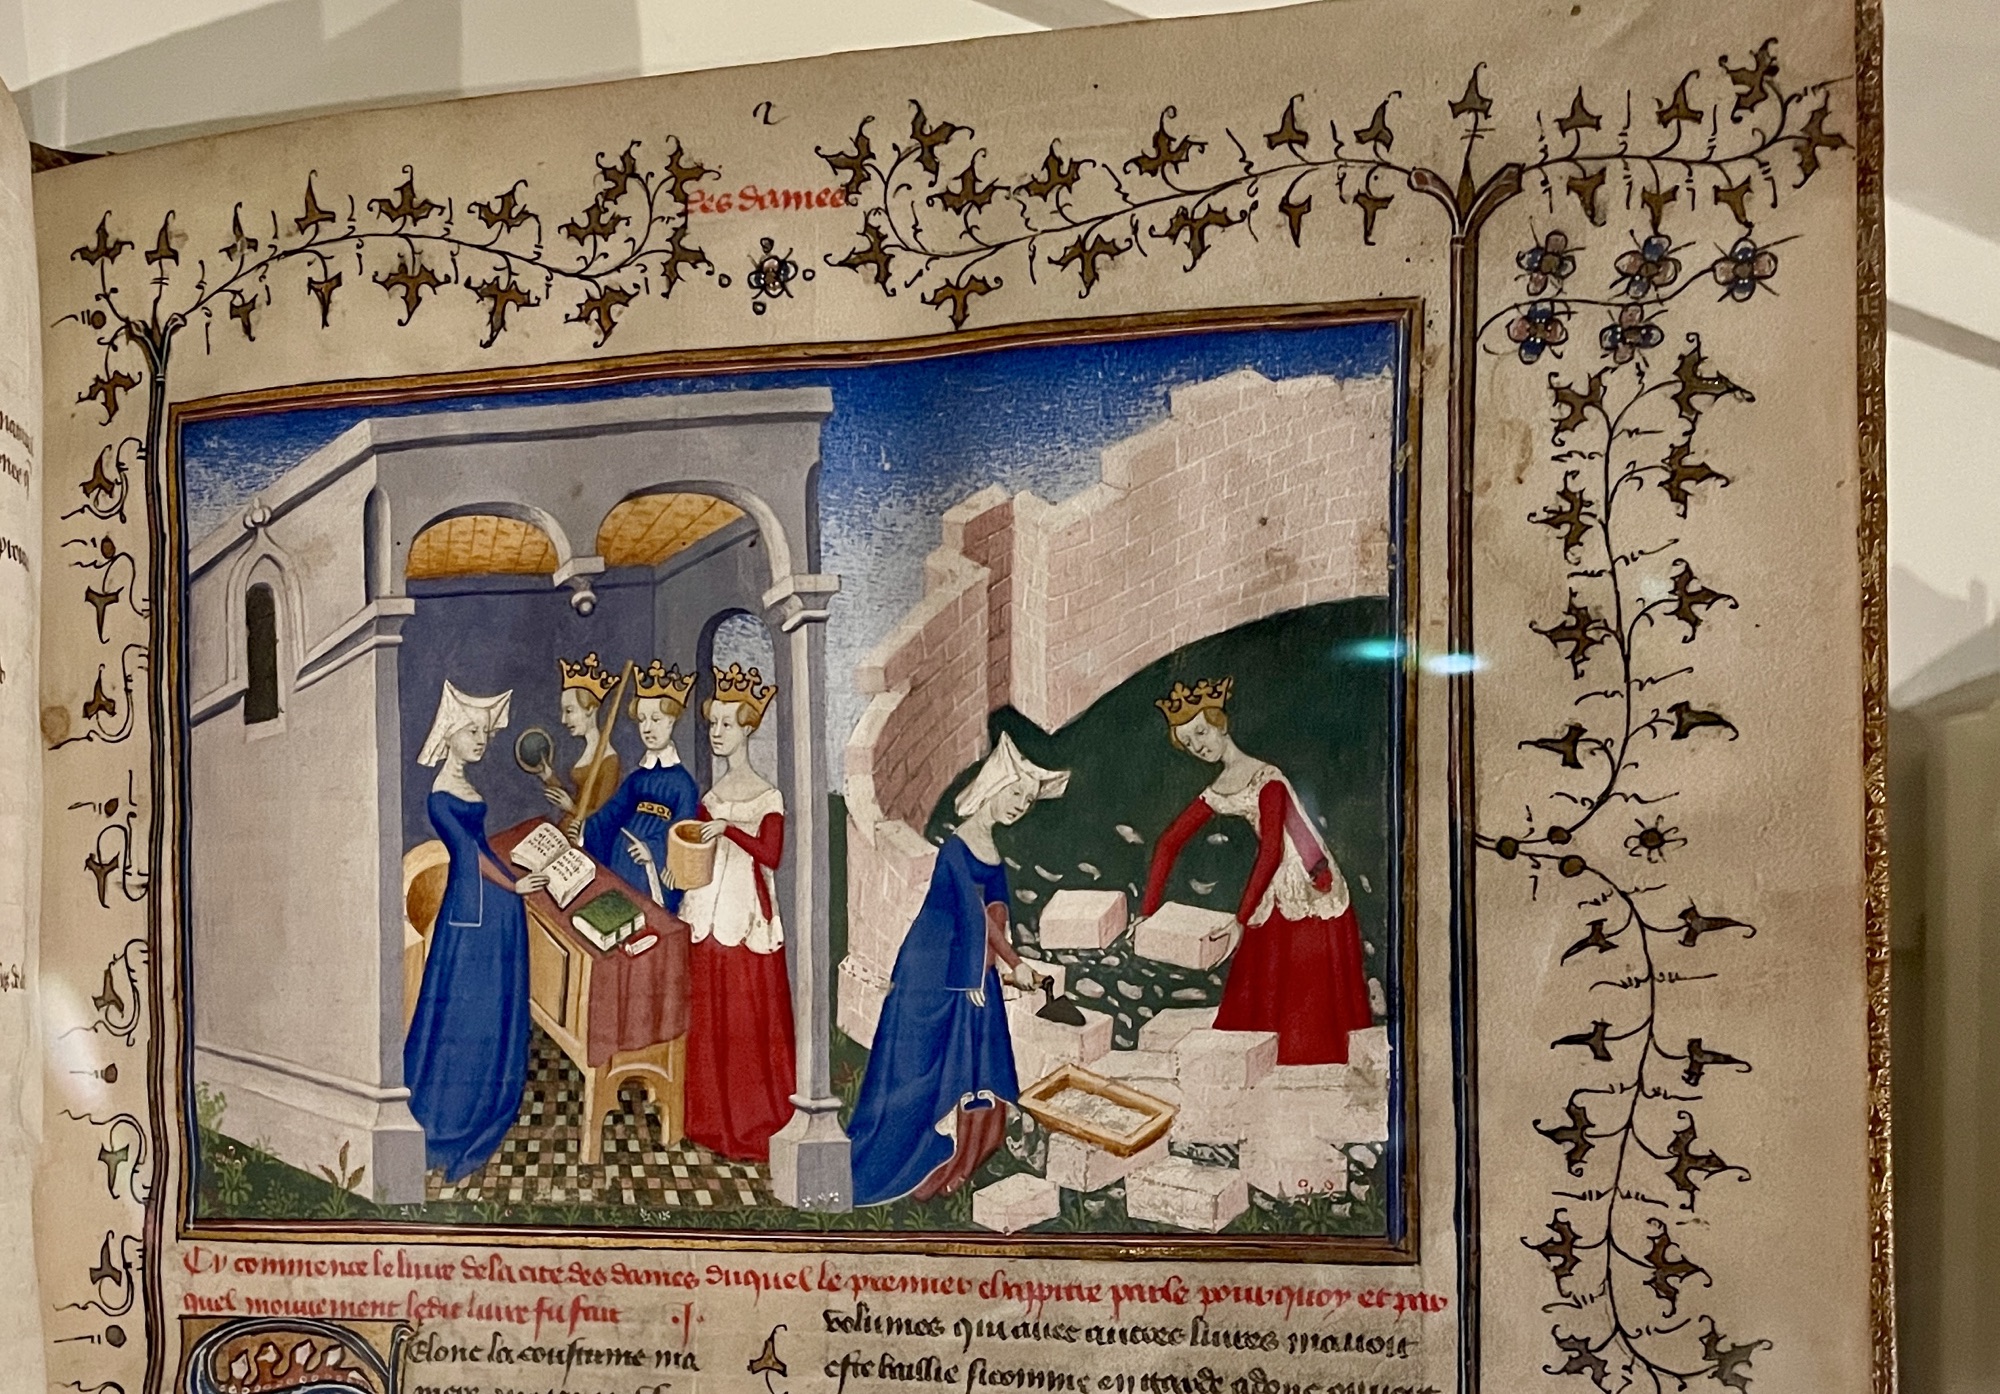 des dames
Cy commence le livre de la cite des dames duquel le premier chappitre parle pourquoy et par
quel mouvement ledit livre fu fait .j.
Selonc la coustume ma
volumes qui avec autres livres mavoit
este baillie si comme en garde adonc